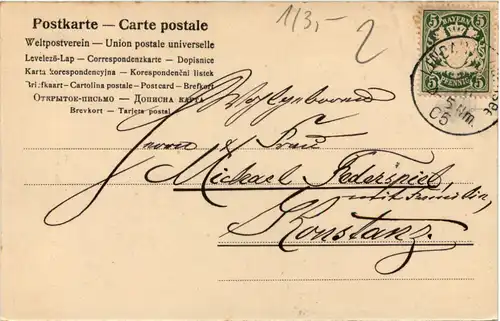 Postkarte — Carte postale
Weltpostverein — Union postale universelle
Levelező-Lap — Correspondenzkarte — Dopisnice
Karta korespondencyjna — Korespondenční lístek
Briefkaart — Cartolina postale — Postcard — Brefkort
Открытое-письмо — Дописна карта
Brevkort — Tarjeta postal
1/3,-
2
5 BAYERN 5
PFENNIG
5 Nm.
05
Wohlgeboren
Herrn & Frau
Michael Federspiel,
mit Familie,
Konstanz.